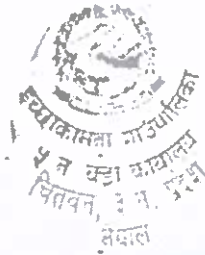 इच्छाकामना गाउँपालिका
५ नं वडा कार्यालय
चितवन,
नेपाल